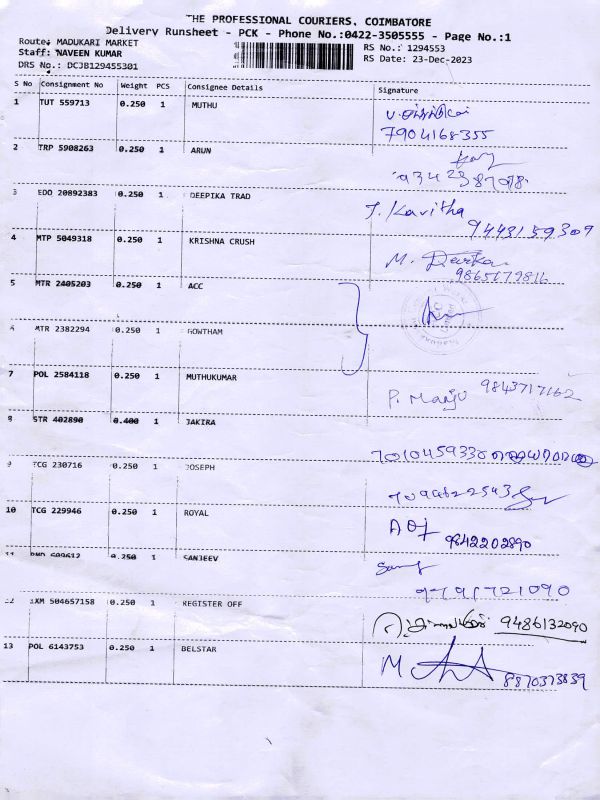 THE PROFESSIONAL COURIERS, COIMBATORE
Delivery Runsheet - PCK - Phone No.:0422-3505555 - Page No.:1
Route: MADUKARI MARKET
RS No.: 1294553
Staff: NAVEEN KUMAR
RS Date: 23-Dec-2023
DRS No.: DCJB129455301
S No Consignment No Weight PCS Consignee Details Signature
1 TUT 559713 0.250 1 MUTHU
7904168355
2 TRP 5908263 0.250 1 ARUN
3 EDO 20892383 0.250 1 DEEPIKA TRAD J. Kavitha
9443159309
4 MTP 5049318 0.250 1 KRISHNA CRUSH M.
9865679816
5 MTR 2405203 0.250 1 ACC
6 MTR 2382294 0.250 1 GOWTHAM
7 POL 2584118 0.250 1 MUTHUKUMAR P. Manju 9843717162
8 STR 402890 0.400 1 JAKIRA
7010459330
9 TCG 230716 0.250 1 JOSEPH
7094622543
10 TCG 229946 0.250 1 ROYAL
9842202890
11 609612 0.250 1 SANJEEV
9791721090
12 IXM 504657158 0.250 1 REGISTER OFF
9486132090
13 POL 6143753 0.250 1 BELSTAR M
8870373839